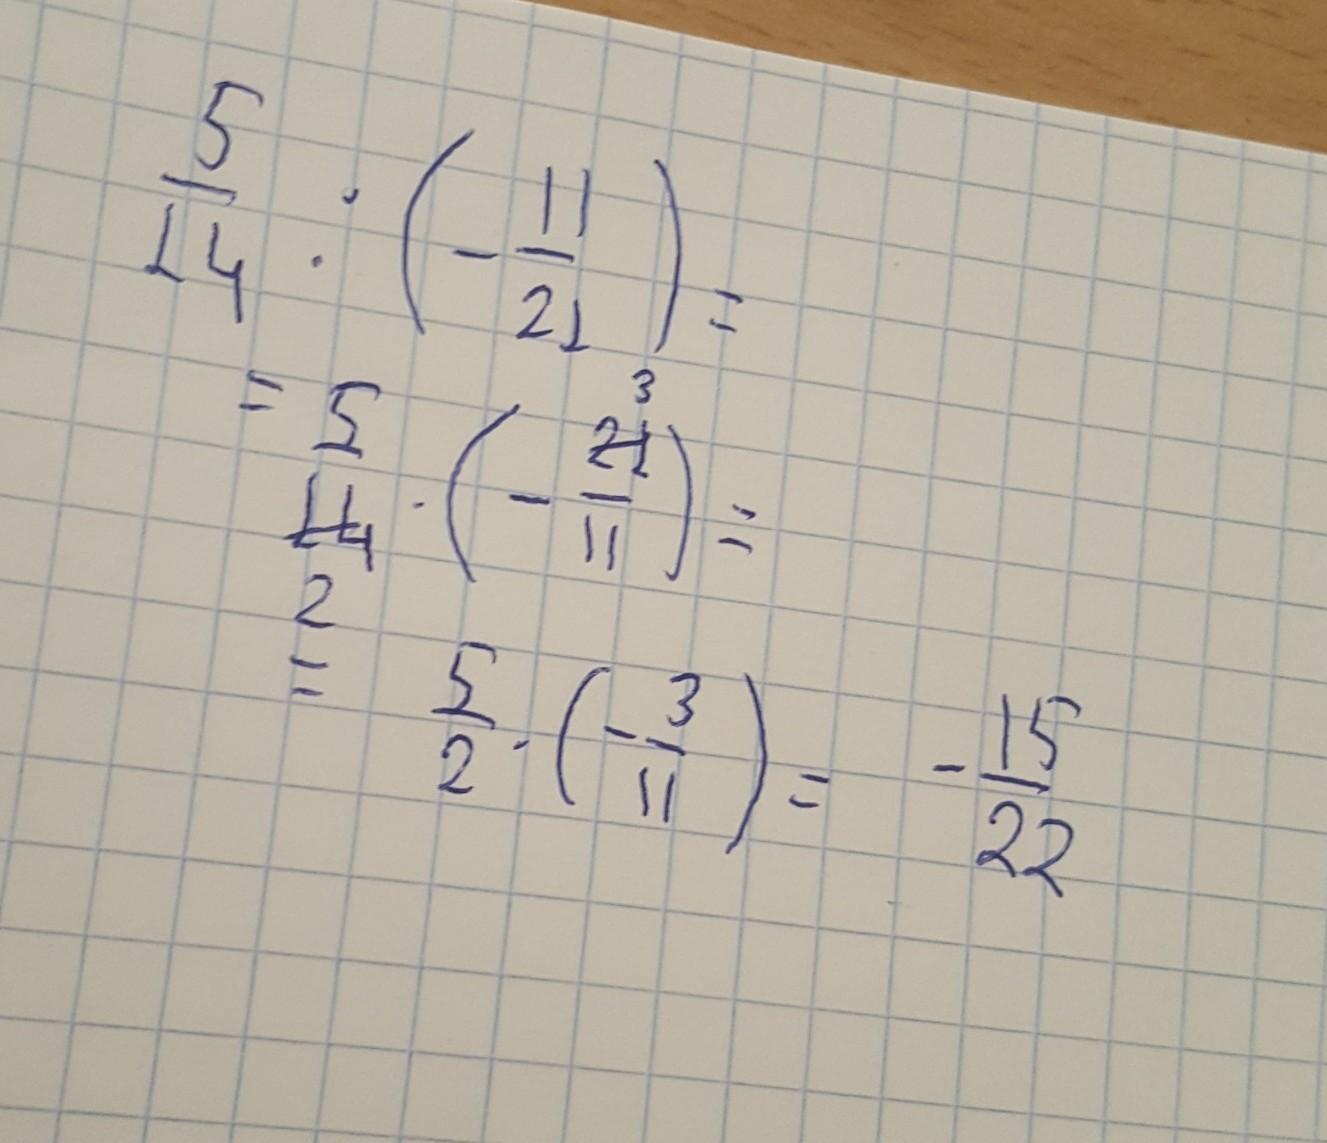 5/14 : (- 11/21) =
= 5/14 2 · (- 21/11 3) =
= 5/2 · (- 3/11) = - 15/22